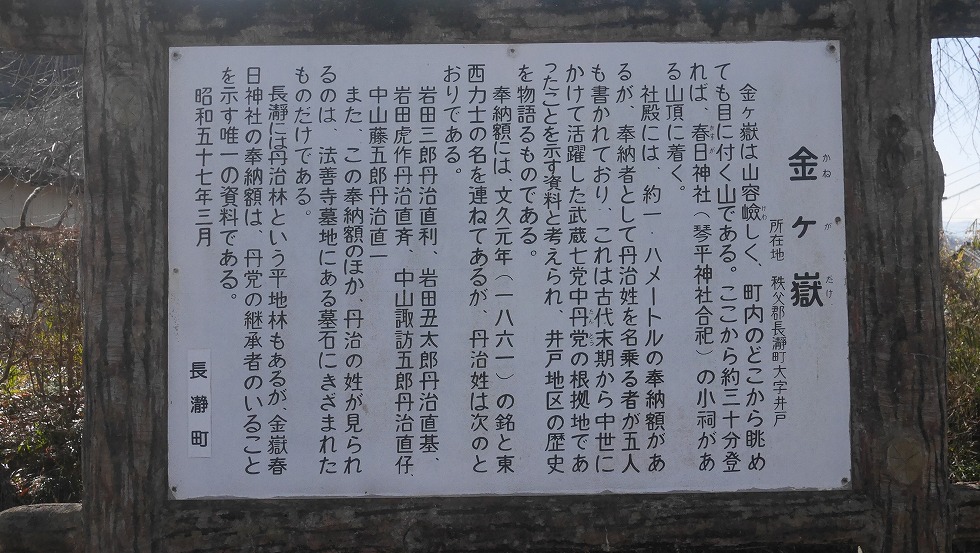 金ヶ嶽
かね が たけ
所在地 秩父郡長瀞町大字井戸
金ヶ嶽は山容嶮しく、町内のどこから眺め
けわ
ても目に付く山である。ここから約三十分登
れば、春日神社(琴平神社合祀)の小祠があ
る山頂に着く。
社殿には、約一・八メートルの奉納額があ
るが、奉納者として丹治姓を名乗る者が五人
も書かれており、これは古代末期から中世に
かけて活躍した武蔵七党中丹党の根拠地であ
たんとう
ったことを示す資料と考えられ、井戸地区の歴史
を物語るものである。
奉納額には、文久元年(一八六一)の銘と東
西力士の名を連ねてあるが、丹治姓は次のと
おりである。
岩田三郎丹治直利、岩田丑太郎丹治直基、
岩田虎作丹治直斉、中山諏訪五郎丹治直仔、
中山藤五郎丹治直一
また、この奉納額のほか、丹治の姓が見られ
るのは、法善寺墓地にある墓石にきざまれた
ものだけである。
長瀞には丹治林という平地林もあるが、金嶽春
日神社の奉納額は、丹党の継承者のいること
を示す唯一の資料である。
昭和五十七年三月
長瀞町